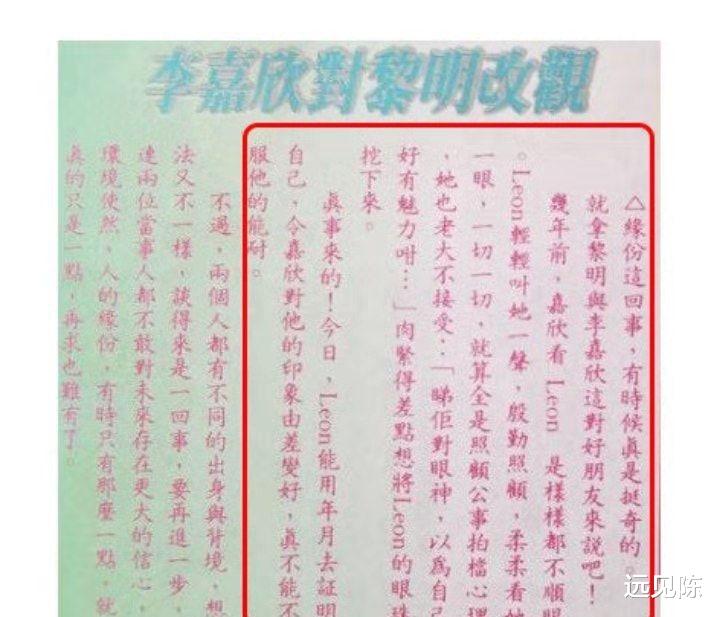 李嘉欣對黎明改觀
△緣份這回事，有時候眞是挺奇的。
就拿黎明與李嘉欣這對好朋友來說吧！
幾年前，嘉欣看 Leon 是樣樣都不順眼
。Leon輕輕叫她一聲，殷勤照顧，柔柔看她
一眼，一切一切，就算全是照顧公事拍檔心理
，她也老大不接受：「睇佢對眼神，以爲自己
好有魅力咁…」肉緊得差點想將Leon的眼珠
挖下來。
眞事來的！今日，Leon能用年月去證明
自己，令嘉欣對他的印象由差變好，眞不能不
服他的能耐。
不過，兩個人都有不同的出身與背境，想
法又不一樣，談得來是一回事，要再進一步，
連兩位當事人都不敢對未來存在更大的信心，
環境使然，人的緣份，有時只有那麼一點，就
眞的只是一點，再求也難有了。
远见陈